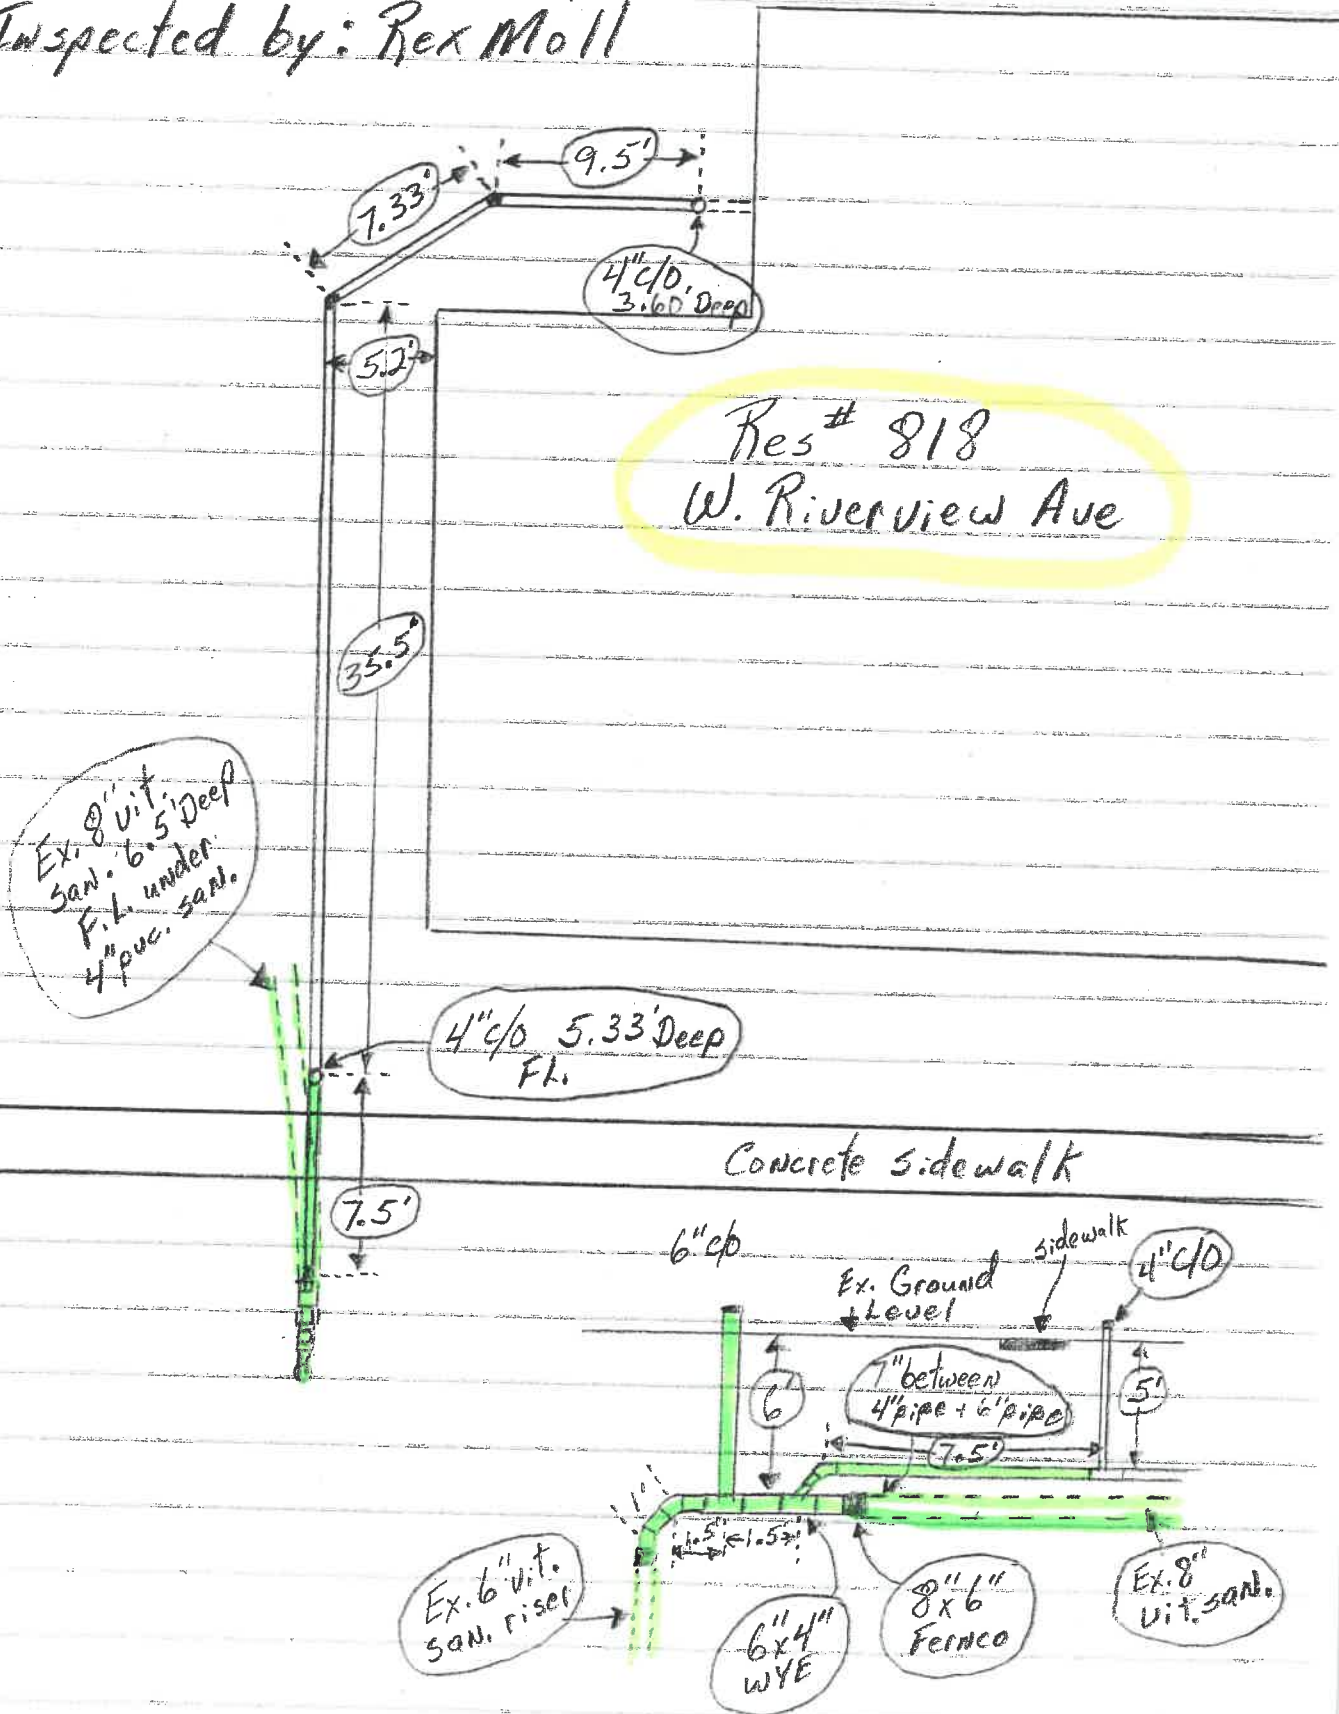 Inspected by: Rex Moll
9.5'
7.33'
4" c/o.
3.60 Deep
5.2'
Res # 818
W. Riverview Ave
35.5'
Ex. 8" Vit.
San. 6.5' Deep
F.L. under
4" pvc. san.
4" c/o 5.33' Deep
FL.
Concrete sidewalk
7.5'
6" c/o
sidewalk
4" c/o
Ex. Ground
Level
7" between
4" pipe + 6" pipe
6'
5'
7.5'
1'
1.5'
1.5'
Ex. 6" Vit.
san. riser
6" x 4"
WYE
8" x 6"
Fernco
Ex. 8"
Vit. san.